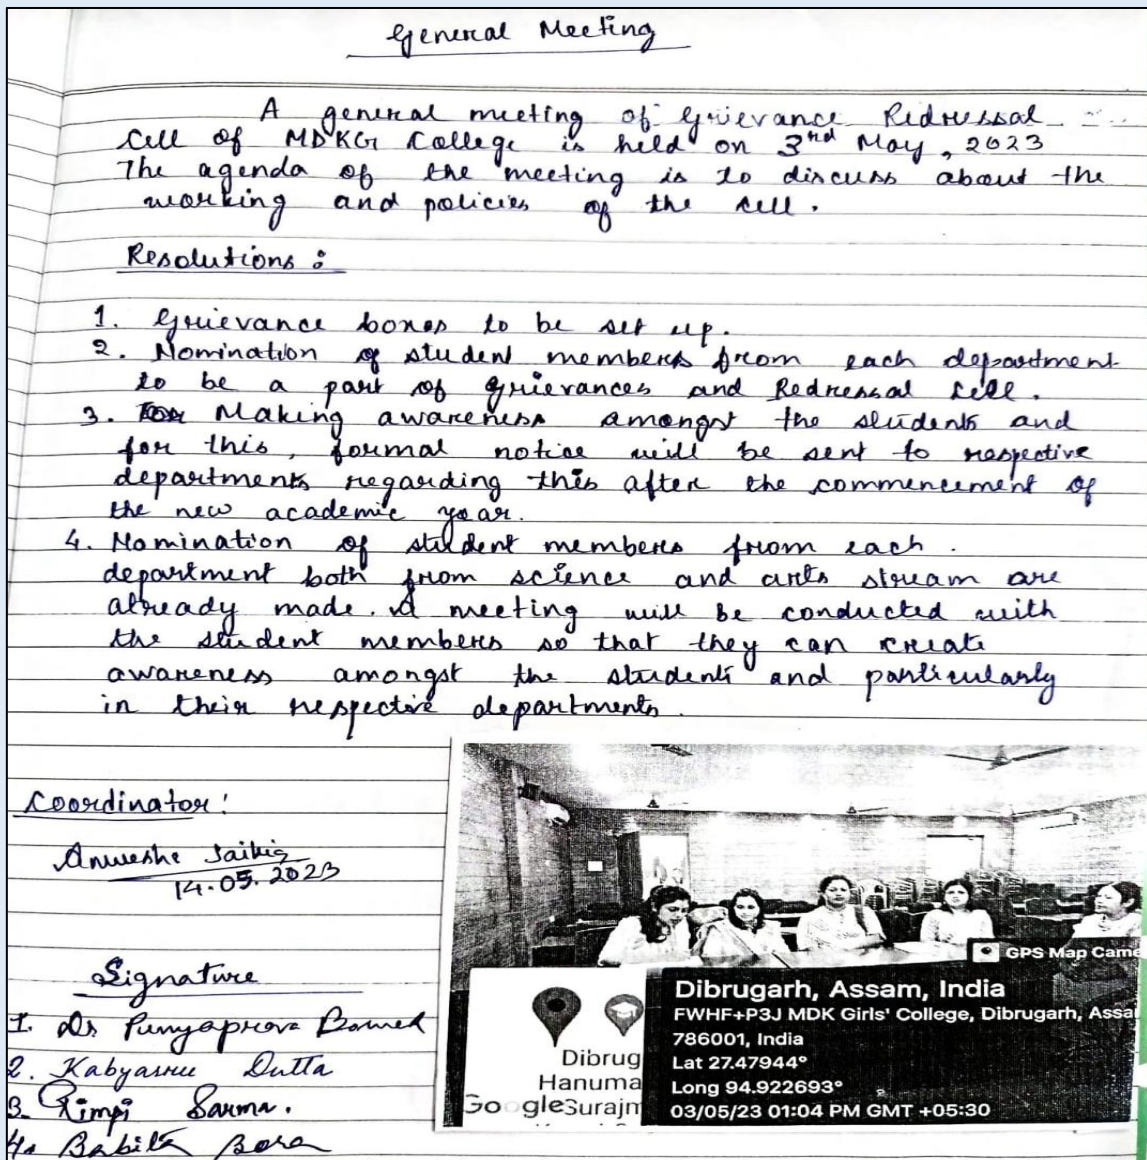 General Meeting
A general meeting of Grievance Redressal
Cell of MDKG College is held on 3rd May, 2023
The agenda of the meeting is to discuss about the
working and policies of the cell.
Resolutions:
1. Grievance boxes to be set up.
2. Nomination of student members from each department
to be a part of grievances and Redressal Cell.
3. Making awareness amongst the students and
for this, formal notice will be sent to respective
departments regarding this after the commencement of
the new academic year.
4. Nomination of student members from each
department both from science and arts stream are
already made. A meeting will be conducted with
the student members so that they can create
awareness amongst the students and particularly
in their respective departments.
Coordinator:
Anweshe Saikia
14.05.2023
Signature
1. Dr Punyaprova
2. Kabyasree Dutta
3. Rimpi Sarma.
4. Babita Bora
GPS Map Came
Dibrugarh, Assam, India
FWHF+P3J MDK Girls' College, Dibrugarh, Assa
786001, India
Lat 27.47944°
Long 94.922693°
03/05/23 01:04 PM GMT +05:30
Dibrug
Hanuma
Google Surajm